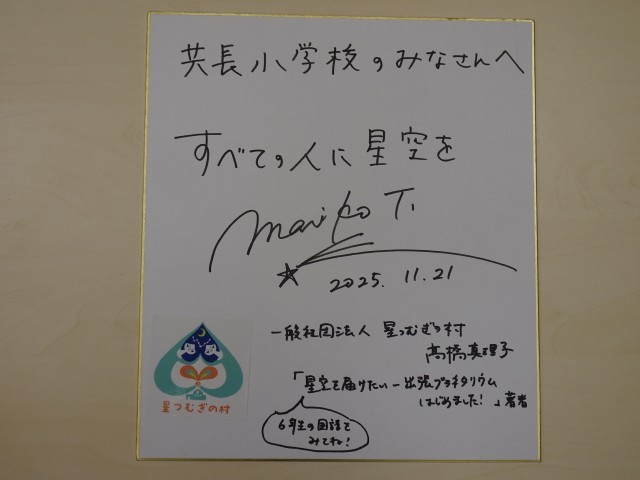 共長小学校のみなさんへ
すべての人に星空を
Mariko T.
2025. 11. 21
一般社団法人 星つむぎの村
髙橋真理子
「星空を届けたい－出張プラネタリウム
はじめました！」著者
6年生の国語で
みてね！
星つむぎの村